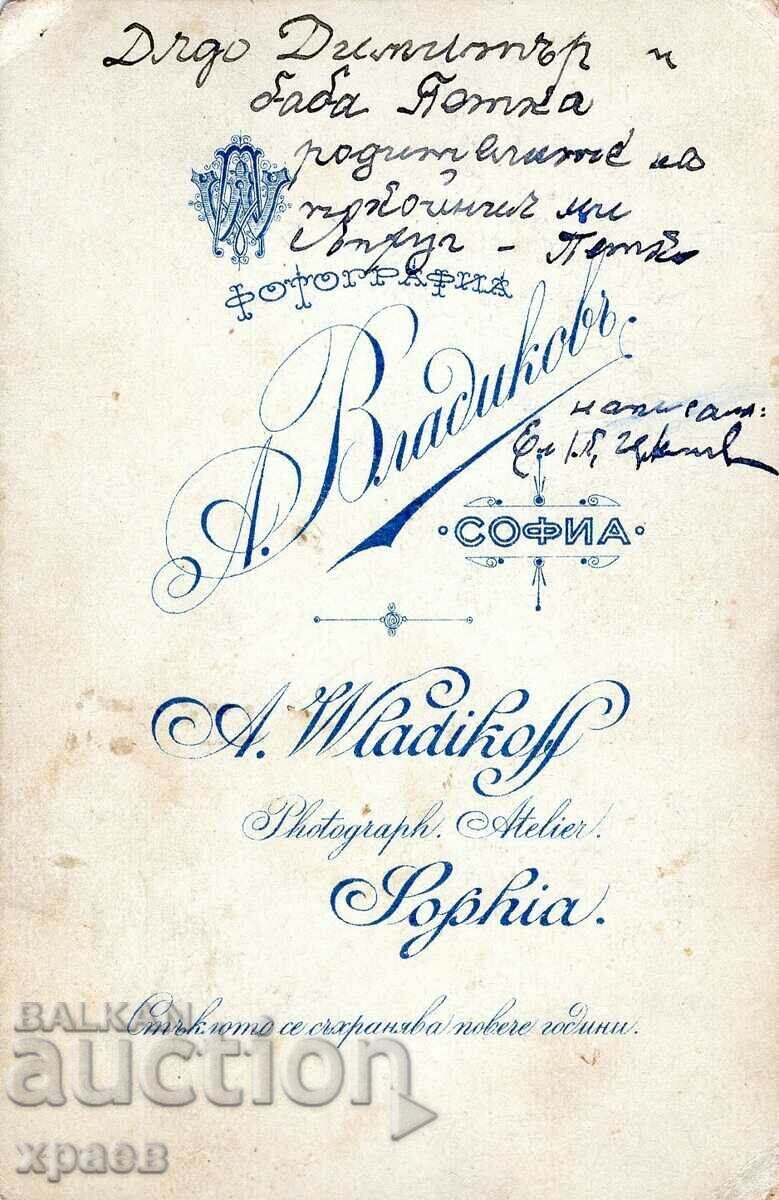 Дядо Димитър и
баба Петка
родителите на
покойния ми
съпруг - Петко
ФОТОГРАФИА
А. Владиковъ.
написал:
Ел
СОФИА
A. Wladikoff
Photograph. Atelier.
Sophia.
Стъклото се съхранява повече години.
BALKAN
auction
храев